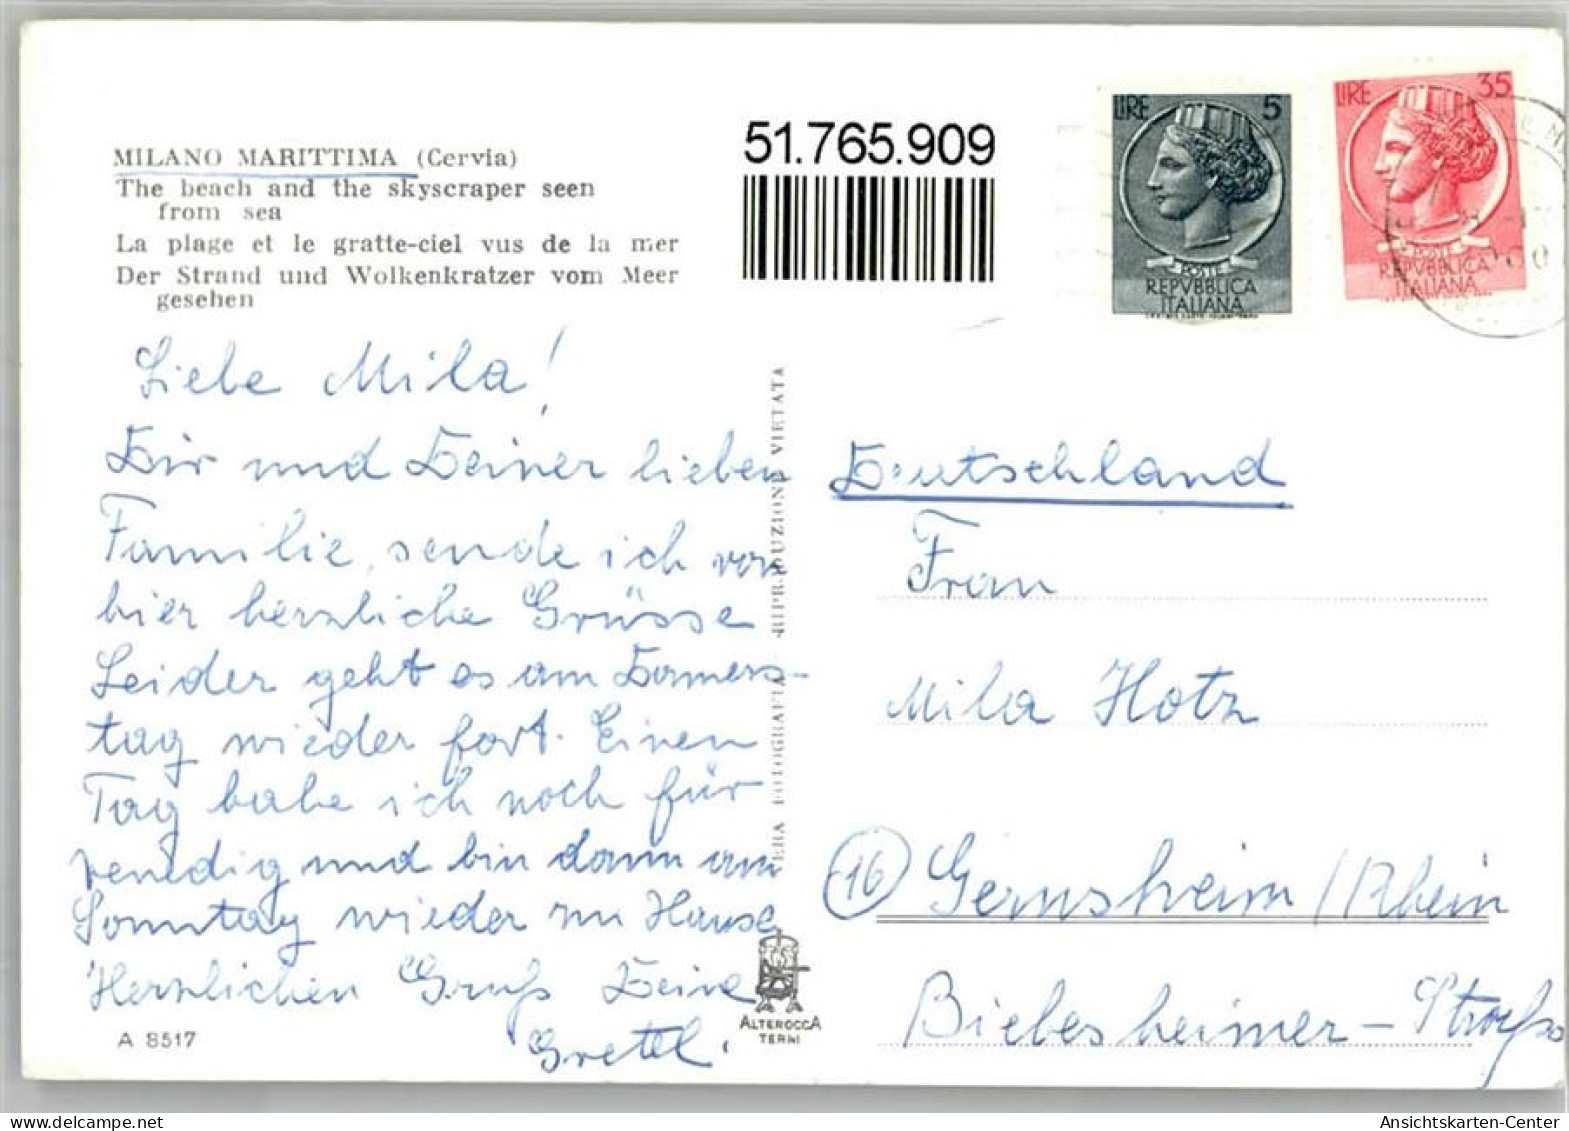 MILANO MARITTIMA (Cervia)
The beach and the skyscraper seen
from sea
La plage et le gratte-ciel vus de la mer
Der Strand und Wolkenkratzer vom Meer
gesehen
51.765.909
LIRE 5
POSTE
REPVBBLICA
ITALIANA
LIRE 35
POSTE
REPVBBLICA
ITALIANA
Liebe Mila!
Dir und Deiner lieben
Familie, sende ich von
hier herzliche Grüsse
Leider geht es am Donners-
tag wieder fort. Einen
Tag habe ich noch für
Venedig und bin dann am
Sonntag wieder zu Hause
Herzlichen Gruß Deine
Gretel.
A 8517
VERA FOTOGRAFIA - RIPRODUZIONE VIETATA
ALTEROCCA
TERNI
Deutschland
Frau
Mila Hotz
(16) Gernsheim/Rhein
Biebesheimer-Straße
Ansichtskarten-Center
delcampe.net